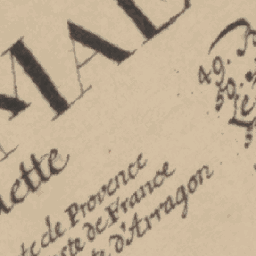 MAL
49. B
50.
Le
lette
te de Provence
ste de France
d'Arragon